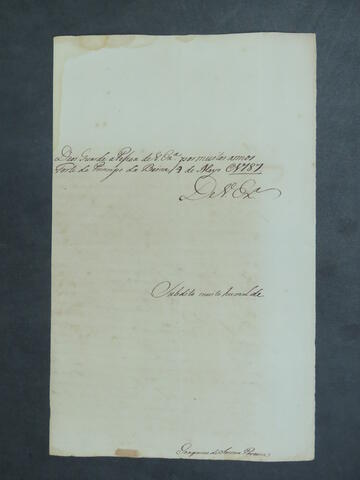 Deos Guarde a Pessoa de V. Exª. por muitos annos
Forte do Principe da Beira, 13 de Mayo 1787.
De V. Exª.
Subdito muito humilde
Joaquim de Souza Pereira